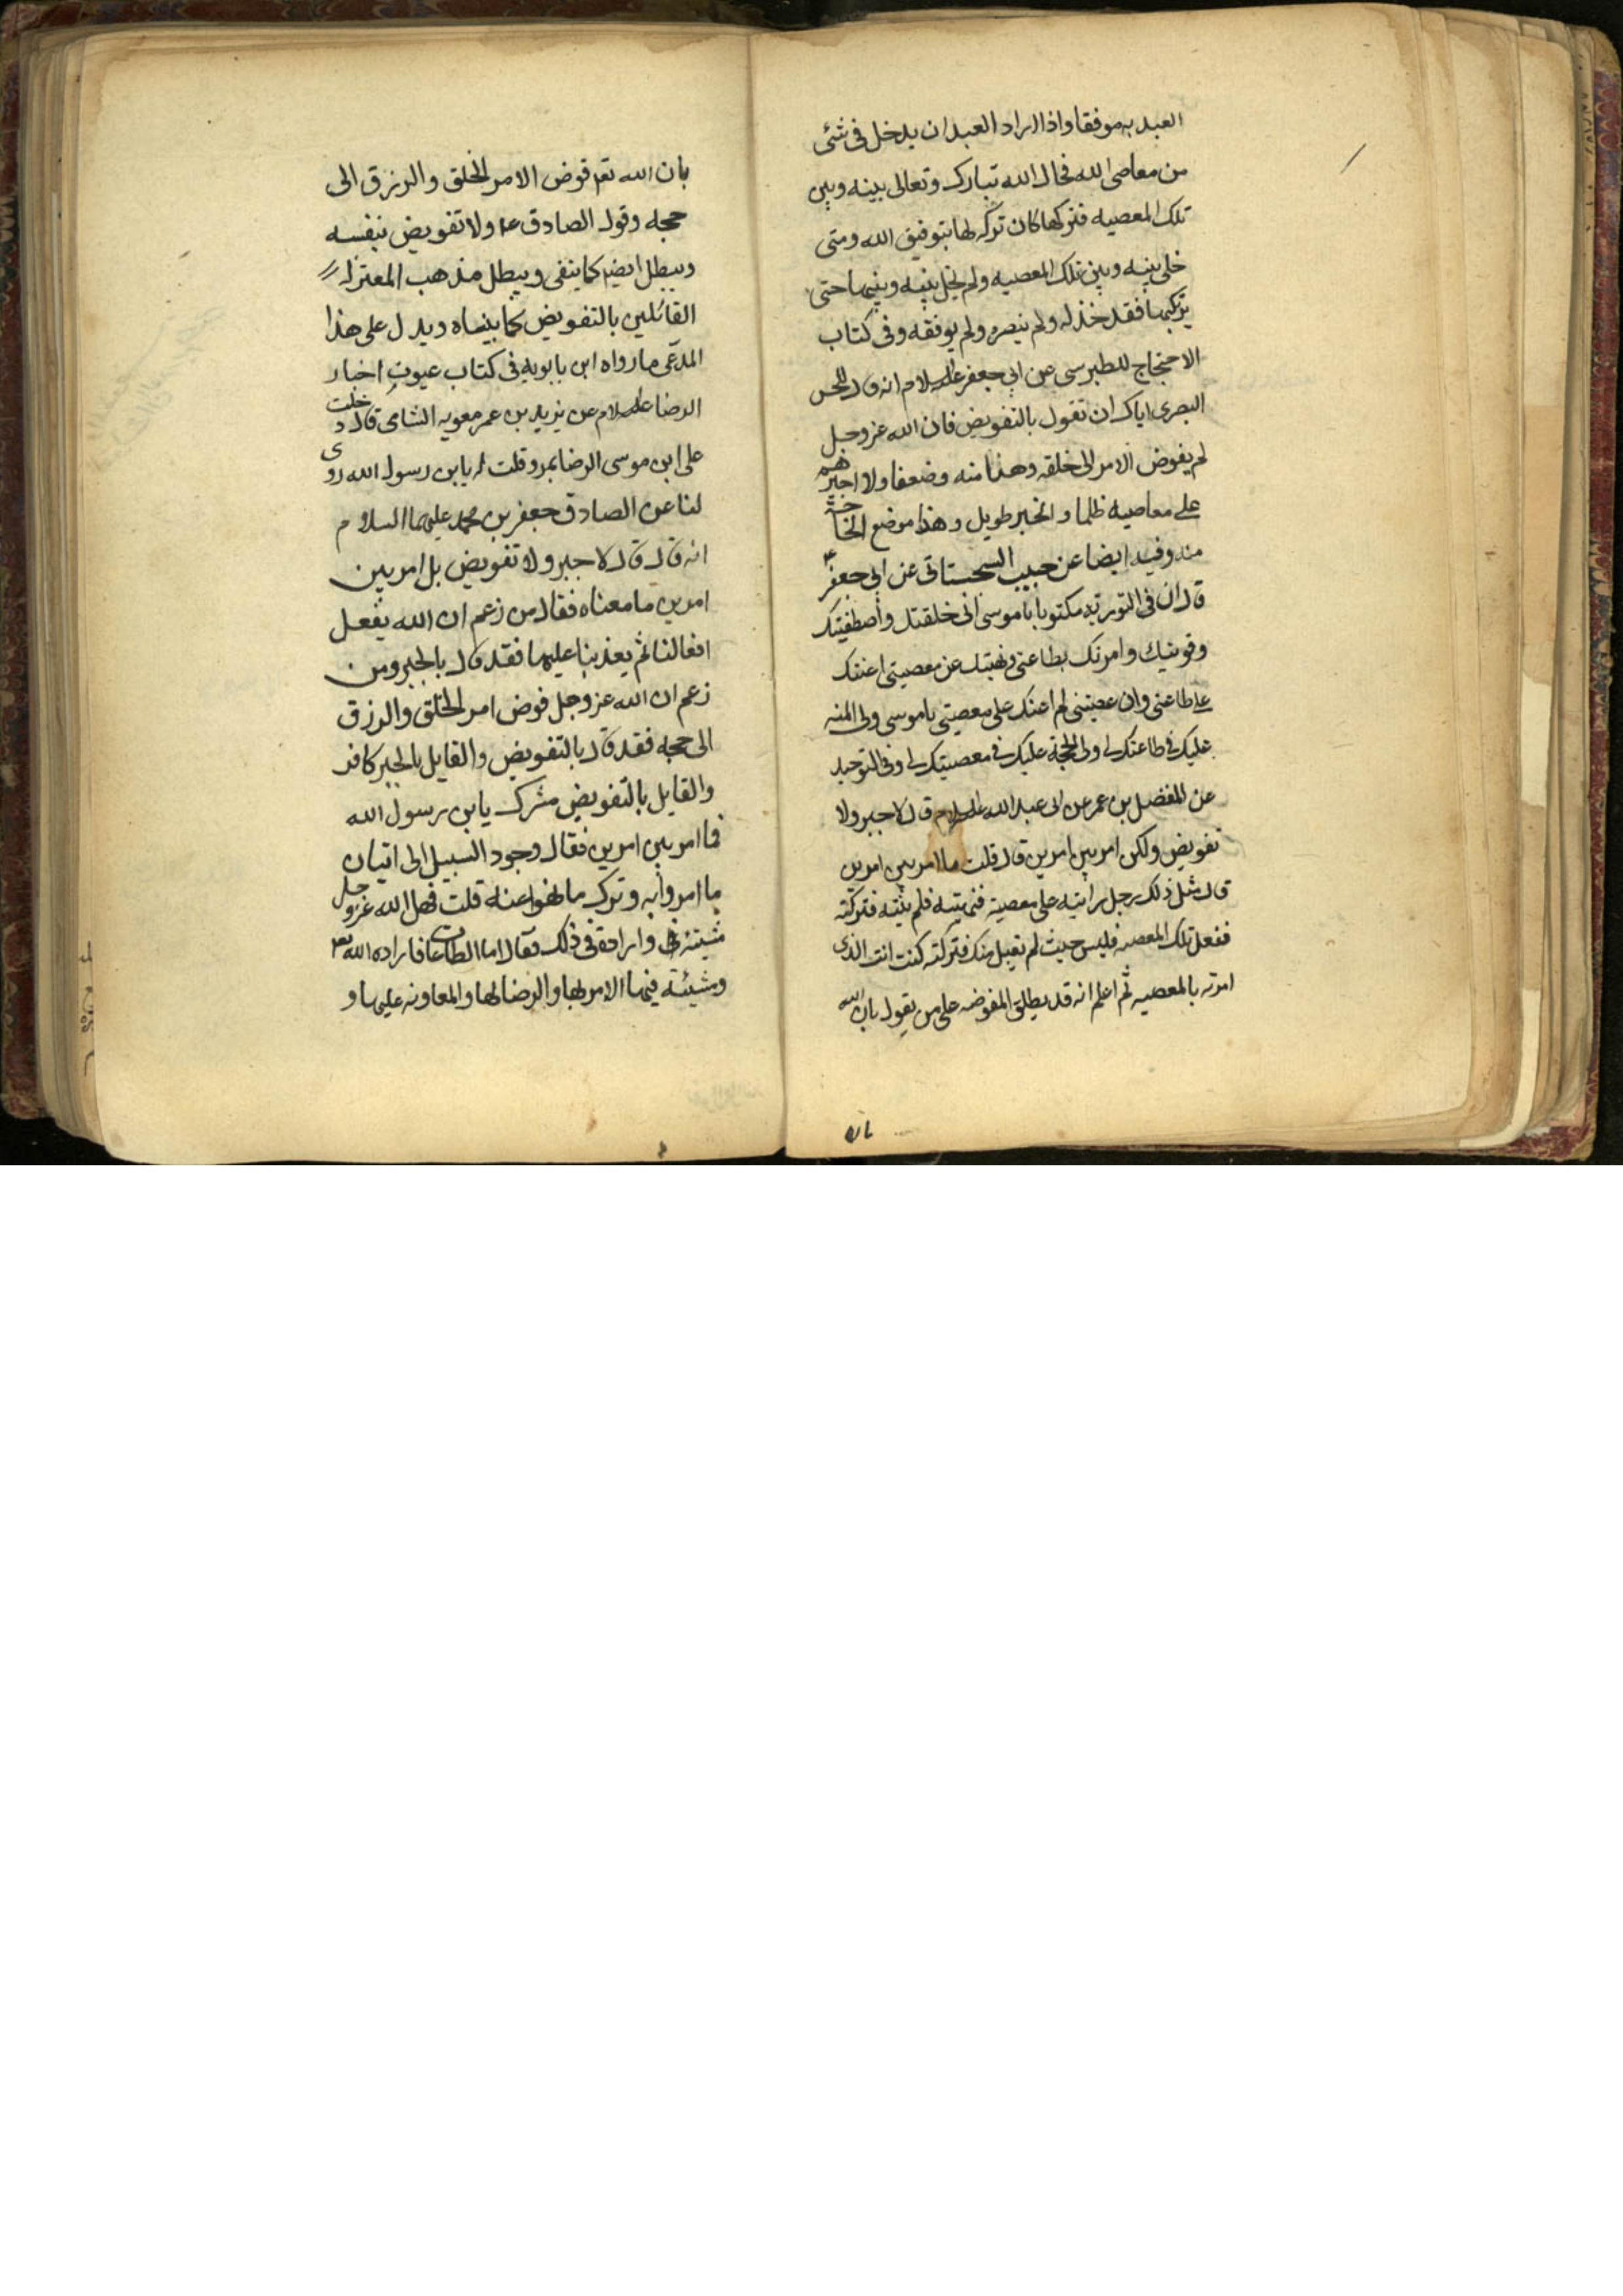 العبد به موفقا واذا اراد العبد ان يدخل فى شئى
من معاصى الله فحال الله تبارك وتعالى بينه وبين
تلك المعصيه فتركها كان تركه لها بتوفيق الله ومتى
خلى بينه وبين تلك المعصيه ولم يخل بينه وبينها حتى
يرتكبها فقد خذله ولم ينصره ولم يوفقه وفى كتاب
الاحتجاج للطبرسى عن ابي جعفر عليه السلام انه قال للحسن
البصرى اياك ان تقول بالتفويض فان الله عز وجل
لم يفوض الامر الى خلقه وهنا منه وضعفا ولا اجبرهم
على معاصيه ظلما والخبر طويل وهذا موضع الحاجة
منه وفيه ايضا عن حبيب السجستانى عن ابى جعفر ع
قال ان فى التوريه مكتوبا ياموسى انى خلقتك واصطفيتك
وقويتك وامرتك بطاعتى ونهيتك عن معصيتى اعنتك
على طاعتى وان عصيتنى لم اعنك على معصيتى ياموسى ولى المنه
عليك فى طاعتك لى ولى الحجة عليك فى معصيتك لى وفى التوحيد
عن المفضل بن عمر عن ابى عبد الله عليه السلام قال لا جبر ولا
تفويض ولكن امر بين امرين قال قلت ما امر بين امرين
قال مثل ذلك رجل رايته على معصية فنهيته فلم ينته فتركته
ففعل تلك المعصيه فليس حيث لم يقبل منك فتركته كنت انت الذى
امرته بالمعصيه ثم اعلم انه قد يطلق المفوضه على من يقول بان الله
بان الله تعم فوض الامر الخلق والرزق الى
حججه وقول الصادق ع ولا تفويض بنفسه
ويبطل ايضم كما ينفى ويبطل مذهب المعتزله
القائلين بالتفويض كما بيناه ويدل على هذا
المدعى ما رواه ابن بابويه فى كتاب عيون اخبار
الرضا عليه السلام عن يزيد بن عمر معويه الشامى قال دخلت
على ابن موسى الرضا بمرو قلت له يابن رسول الله روى
لنا عن الصادق جعفر بن محمد عليهما السلام
انه قال قال لا جبر ولا تفويض بل امر بين
امرين ما معناه فقال من زعم ان الله يفعل
افعالنا ثم يعذبنا عليها فقد قال بالجبر ومن
زعم ان الله عز وجل فوض امر الخلق والرزق
الى حججه فقد قال بالتفويض والقايل بالجبر كافر
والقايل بالتفويض مشرك يابن رسول الله
فما امر بين امرين فقال وجود السبيل الى اتيان
ما امروا به وترك ما نهوا عنه قلت فهل الله عز وجل
مشيئة وارادة فى ذلك فقال اما الطاعات فارادة الله
ومشيئته فيها الامر بها والرضا لها والمعاونه عليها و